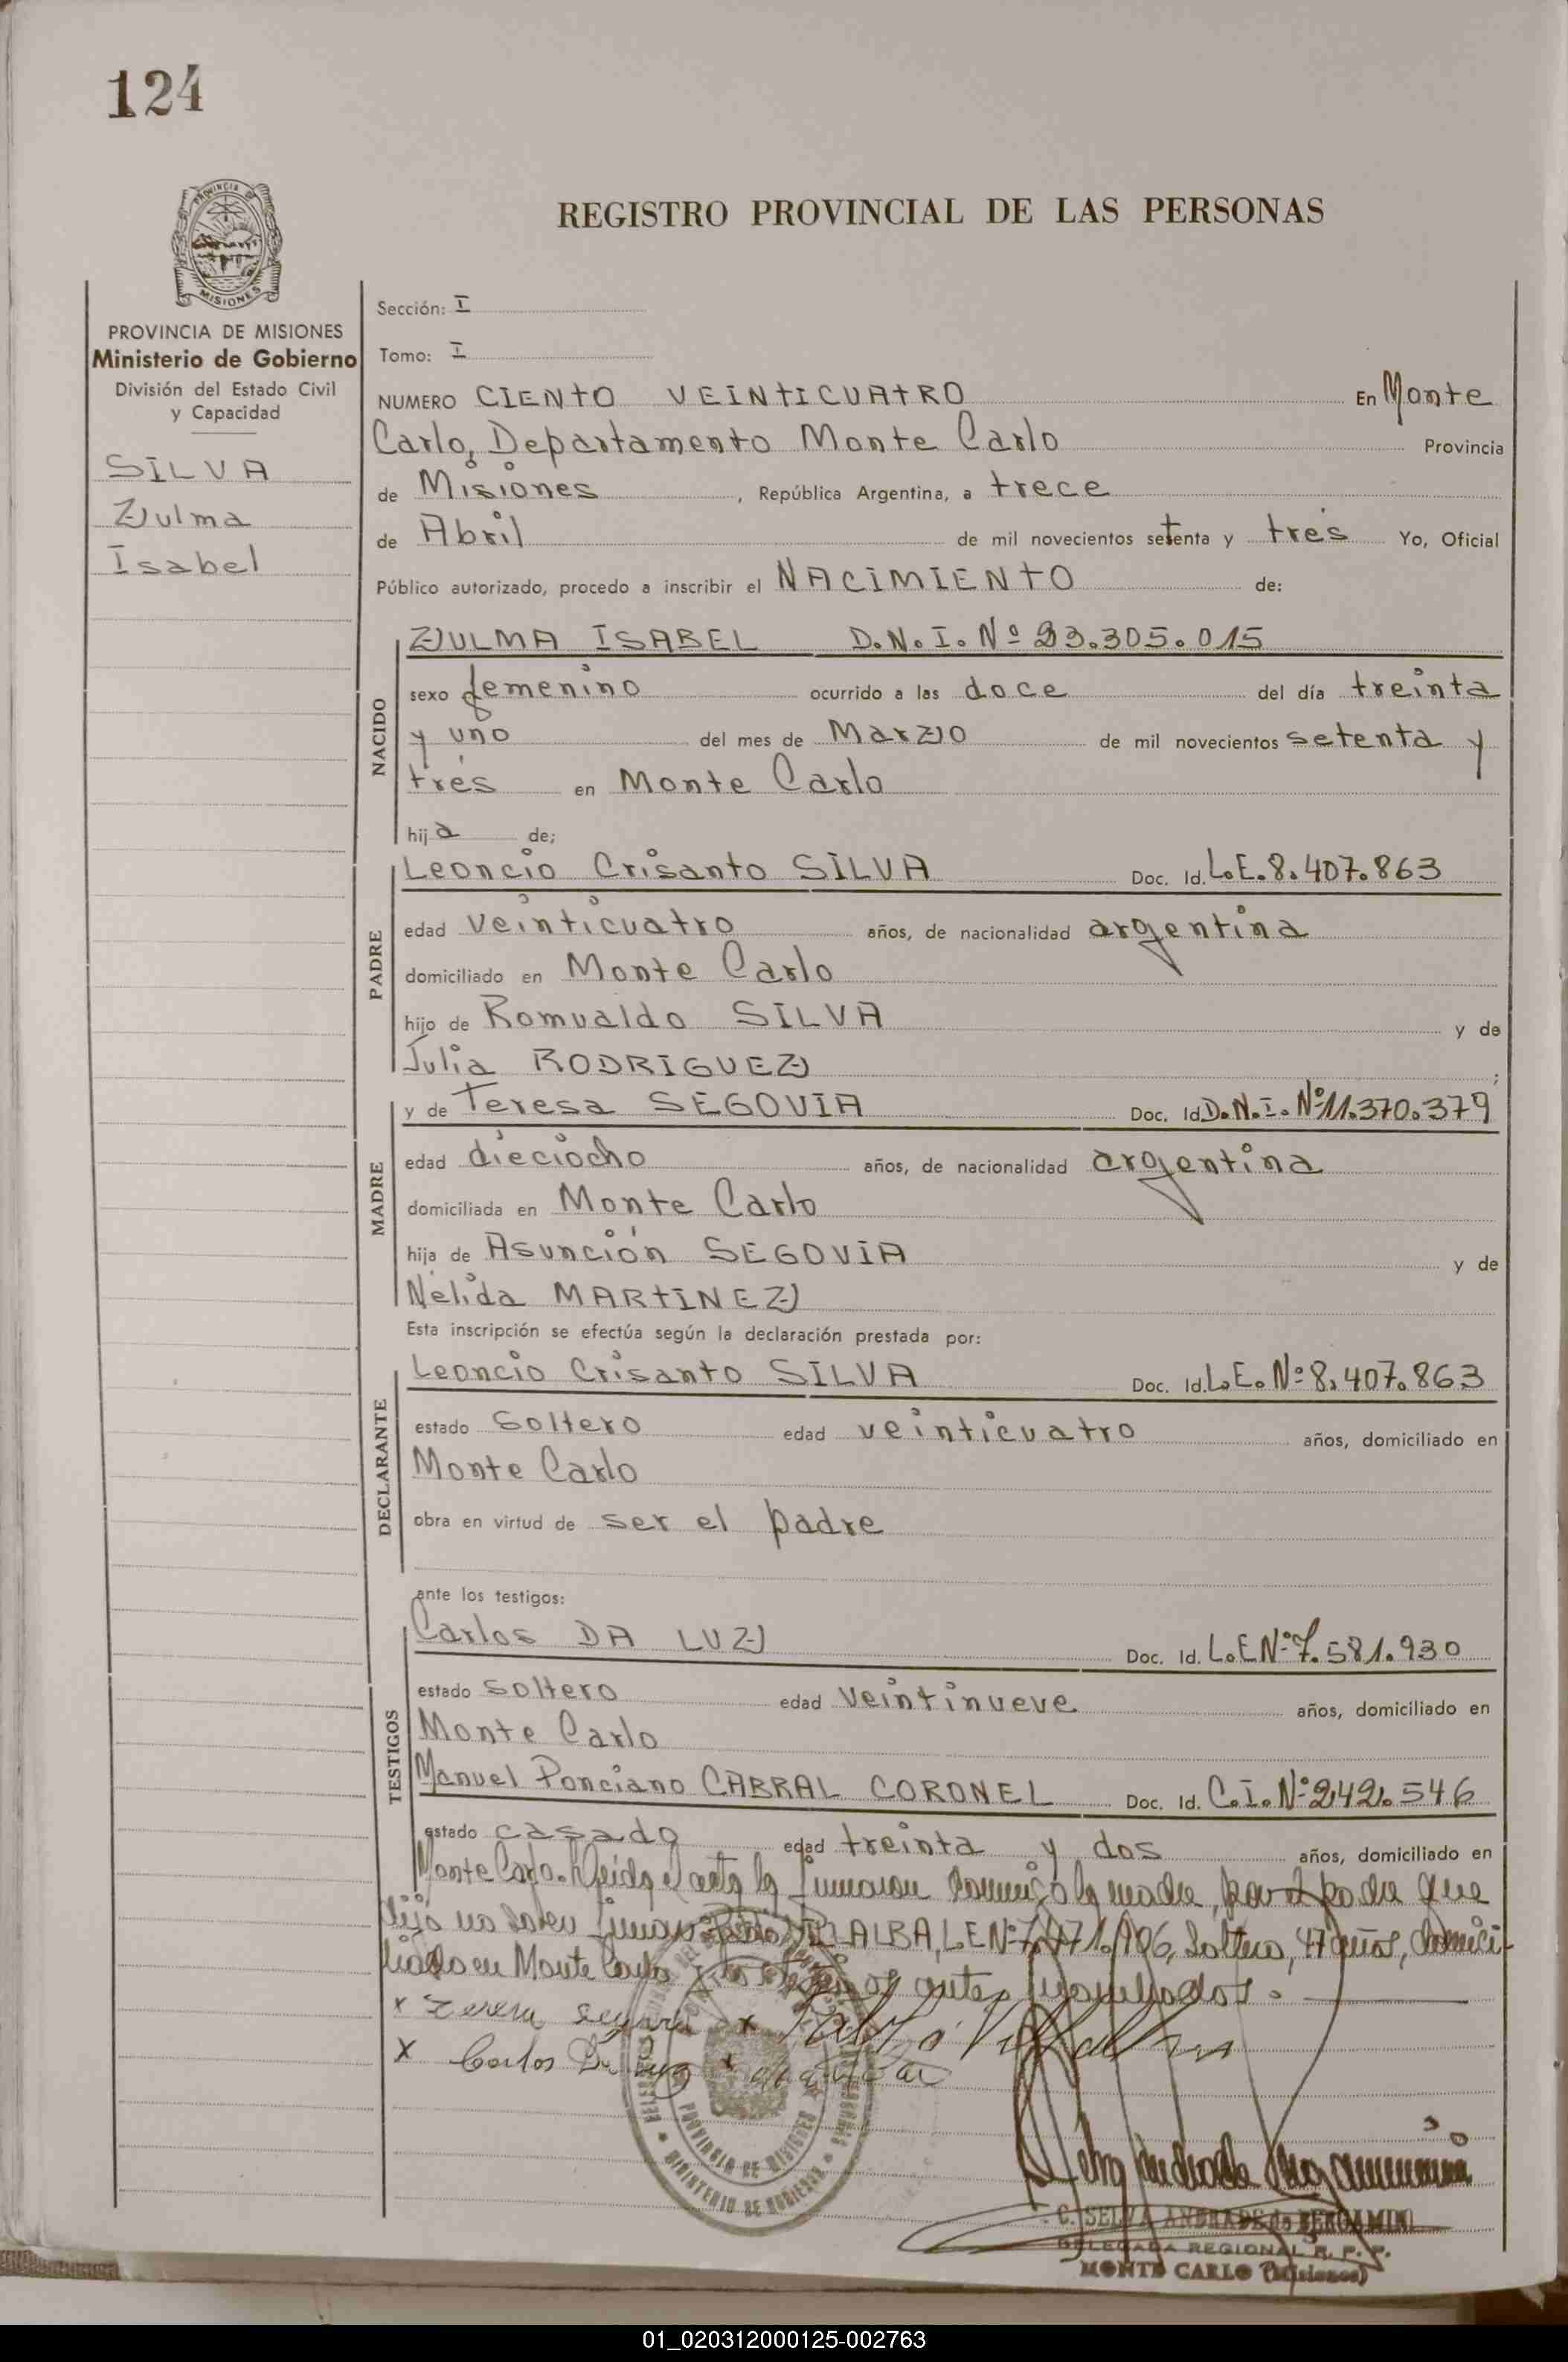 124
PROVINCIA DE
MISIONES
REGISTRO PROVINCIAL DE LAS PERSONAS
PROVINCIA DE MISIONES
Ministerio de Gobierno
División del Estado Civil
y Capacidad
SILVA
Zulma
Isabel
Sección: I
Tomo: I
NUMERO CIENTO VEINTICUATRO En Monte
Carlo, Departamento Monte Carlo Provincia
de Misiones, República Argentina, a trece
de Abril de mil novecientos setenta y tres Yo, Oficial
Público autorizado, procedo a inscribir el NACIMIENTO de:
NACIDO
ZULMA ISABEL D.N.I. Nº 23.305.015
sexo femenino ocurrido a las doce del día treinta
y uno del mes de Marzo de mil novecientos setenta y
tres en Monte Carlo
hija de;
PADRE
Leoncio Crisanto SILVA Doc. Id. L.E. 8.407.863
edad veinticuatro años, de nacionalidad argentina
domiciliado en Monte Carlo
hijo de Romualdo SILVA y de
Julia RODRIGUEZ ;
MADRE
y de Teresa SEGOVIA Doc. Id. D.N.I. Nº 11.370.379
edad dieciocho años, de nacionalidad argentina
domiciliada en Monte Carlo
hija de Asunción SEGOVIA y de
Nélida MARTINEZ
Esta inscripción se efectúa según la declaración prestada por:
DECLARANTE
Leoncio Crisanto SILVA Doc. Id. L.E. Nº 8.407.863
estado Soltero edad veinticuatro años, domiciliado en
Monte Carlo
obra en virtud de ser el padre
ante los testigos:
TESTIGOS
Carlos DA LUZ Doc. Id. L.E Nº 7.581.930
estado soltero edad veintinueve años, domiciliado en
Monte Carlo
Manuel Ponciano CABRAL CORONEL Doc. Id. C.I. Nº 242.546
estado casado edad treinta y dos años, domiciliado en
Monte Carlo. Leida el acta la firmaron conmigo la madre, por el padre que
dijo no saber firmar VILLALBA, L.E Nº soltero, 47 años, domici-
liado en Monte Carlo y los testigos antes
x Teresa Segovia x Villalba
x Carlos Da Luz x
PROVINCIA DE MISIONES
MINISTERIO DE GOBIERNO
C. SELVA ANDRADE de BERGAMINI
DELEGADA REGIONAL R. P. P.
MONTE CARLO (Misiones)
01_020312000125-002763